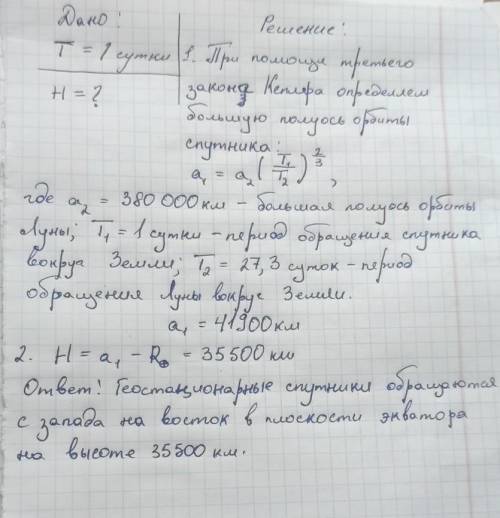 Дано:
T = 1 сутки
H = ?
Решение:
1. При помощи третьего
закона Кеплера определяем
большую полуось орбиты
спутника:
a₁ = a₂ (T₁/T₂)^(2/3),
где a₂ = 380 000 км – большая полуось орбиты
Луны; T₁ = 1 сутки – период обращения спутника
вокруг Земли; T₂ = 27,3 суток – период
обращения Луны вокруг Земли.
a₁ = 41900 км
2. H = a₁ – R⊕ = 35500 км
Ответ: Геостационарные спутники обращаются
с запада на восток в плоскости экватора
на высоте 35500 км.